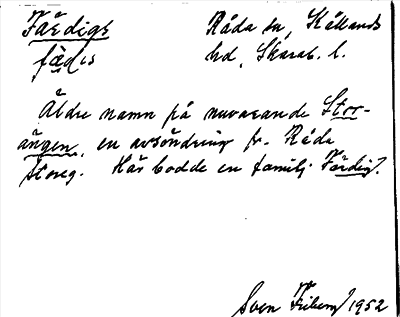 Färdigs Råda sn, Kållands
fàḍis hd, Skarab. l.
Äldre namn på nuvarande Stor-
ängen, en avsöndring fr. Råda
storeg. Här bodde en familj Färdig.
Sven Friberg 1952